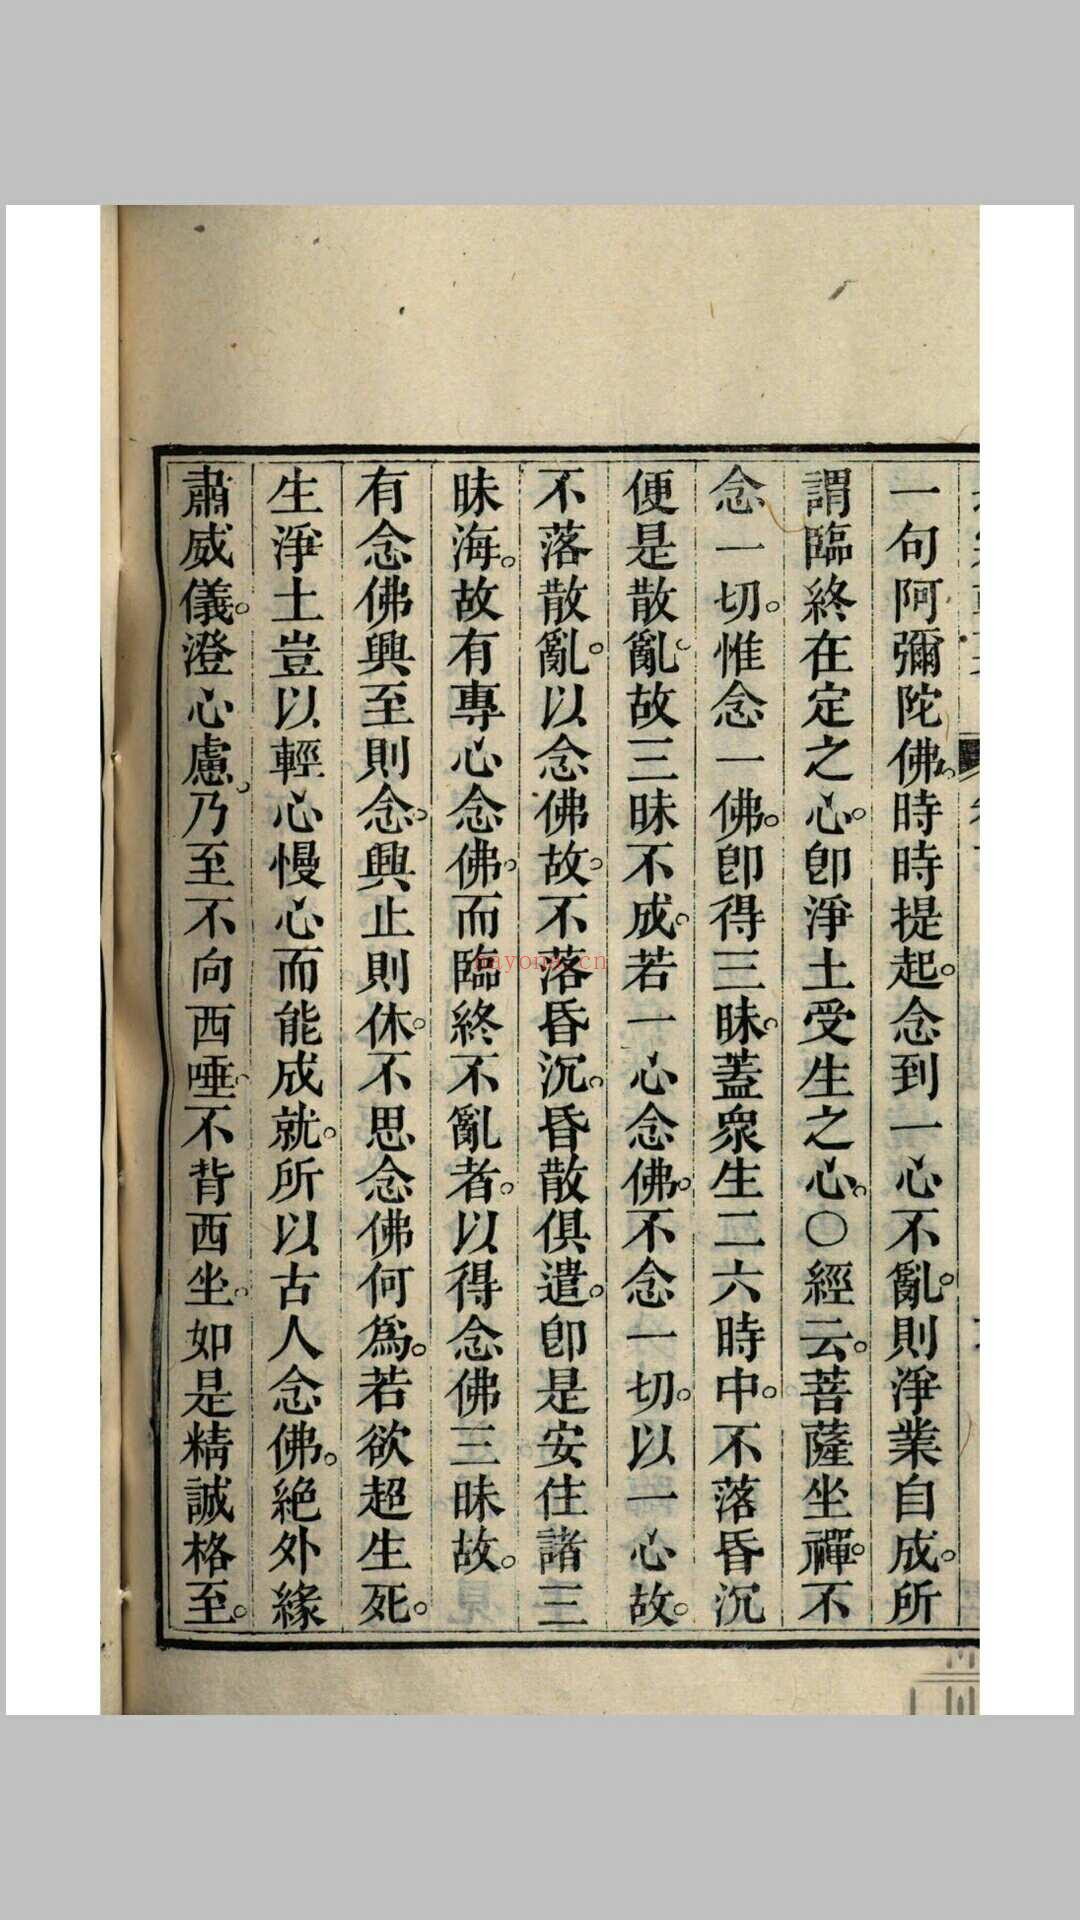 一句阿彌陀佛。時時提起。念到一心不亂。則淨業自成。所
謂臨終在定之心。卽淨土受生之心。○經云。菩薩坐禪。不
念一切。惟念一佛。卽得三昧。蓋衆生二六時中。不落昏沉
便是散亂。故三昧不成。若一心念佛。不念一切。以一心故。
不落散亂。以念佛故。不落昏沉。昏散俱遣。卽是安住諸三
昧海。故有專心念佛。而臨終不亂者。以得念佛三昧故。
有念佛興至則念。興止則休。不思念佛何爲。若欲超生死。
生淨土豈以輕心慢心而能成就。所以古人念佛。絶外緣
肅威儀。澄心慮。乃至不向西唾。不背西坐。如是精誠格至。